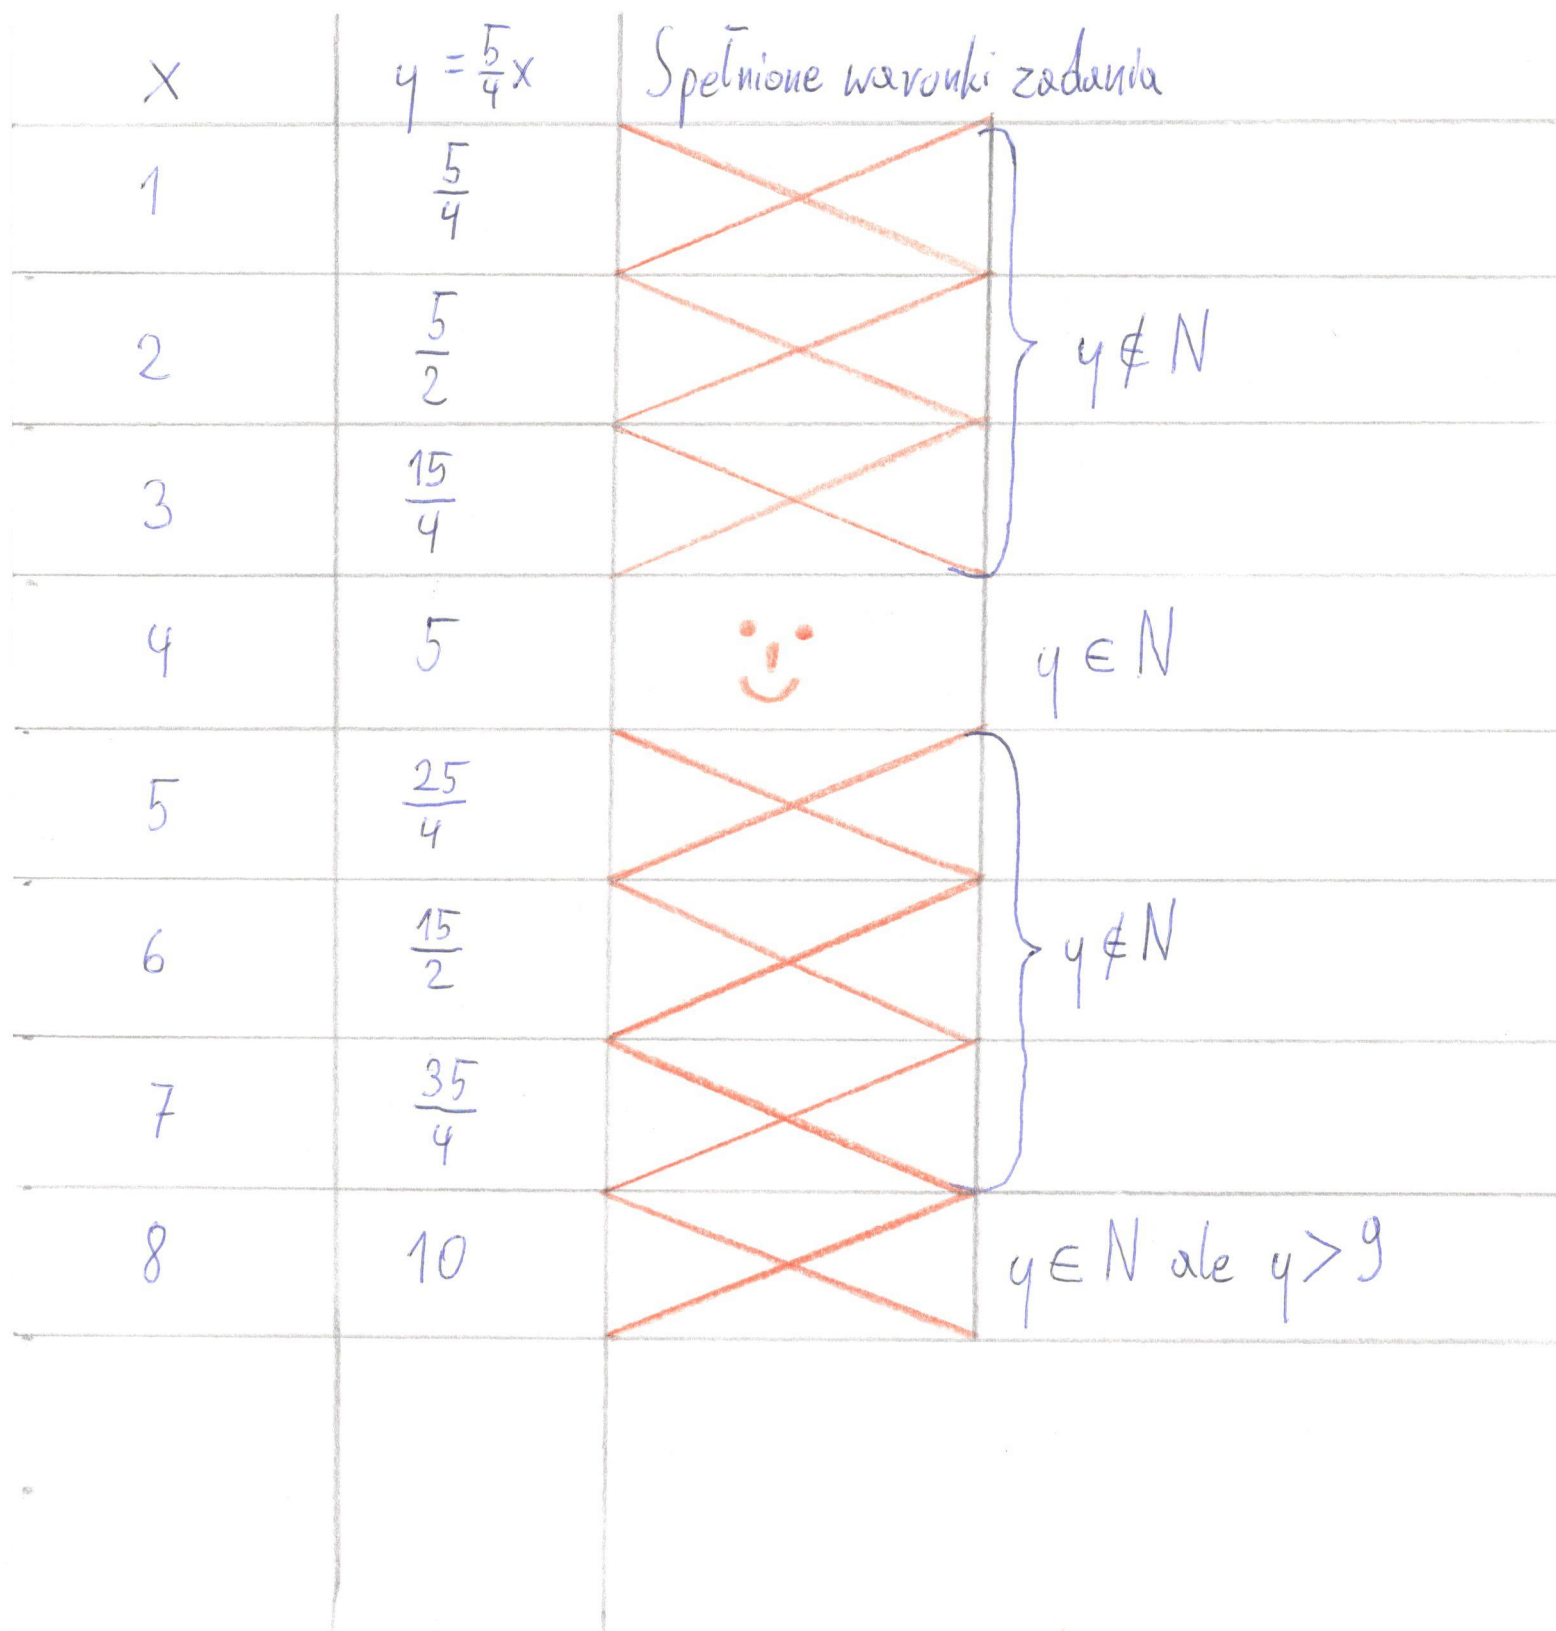 x y = 5/4 x Spełnione warunki zadania
1 5/4
2 5/2 y ∉ N
3 15/4
4 5 y ∈ N
5 25/4
6 15/2 y ∉ N
7 35/4
8 10 y ∈ N ale y > 9